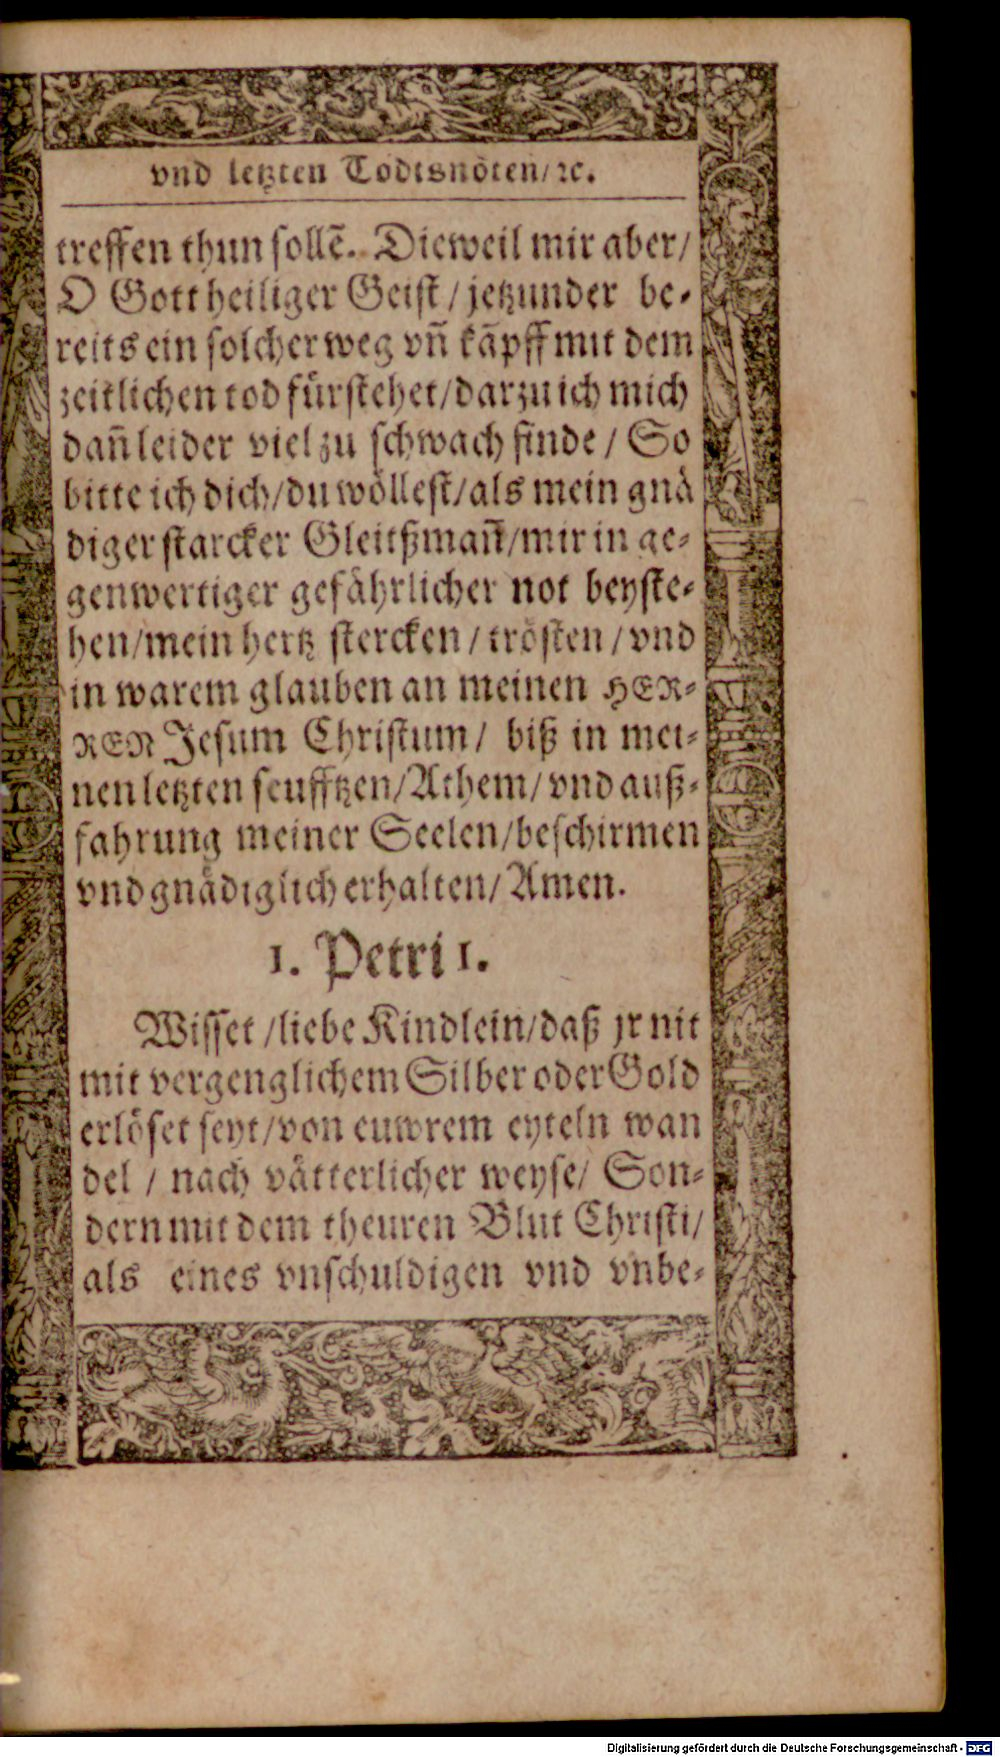 vnd letzten Todtsnöten/ ⁊c.
treffen thun sollẽ. Dieweil mir aber/
O Gott heiliger Geist / jetzunder be-
reits ein solcher weg vñ kãpff mit dem
zeitlichen tod fürstehet/darzu ich mich
dañ leider viel zu schwach finde / So
bitte ich dich/du wöllest/als mein gnä
diger starcker Gleitßmañ/mir in ge-
genwertiger gefährlicher not beyste-
hen/mein hertz stercken / trösten / vnd
in warem glauben an meinen HER-
REN Jesum Christum/ biß in mei-
nen letzten seufftzen/Athem/vnd auß-
fahrung meiner Seelen/beschirmen
vnd gnädiglich erhalten/ Amen.
1. Petri 1.
Wisset /liebe Kindlein/daß jr nit
mit vergenglichem Silber oder Gold
erlöset seyt/von euwrem eyteln wan
del / nach vätterlicher weyse/ Son-
dern mit dem theuren Blut Christi/
als eines vnschuldigen vnd vnbe-
Digitalisierung gefördert durch die Deutsche Forschungsgemeinschaft - DFG